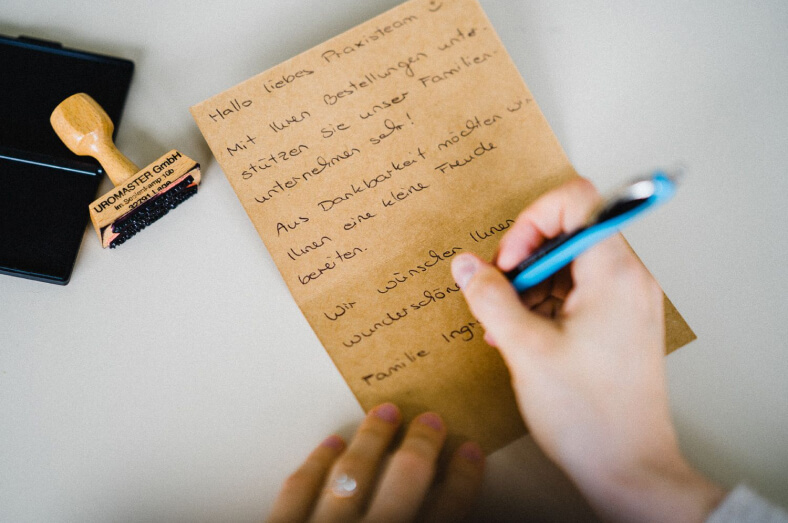 UROMASTER GmbH
Im Seelenkamp 10b
32791 Lage
Hallo liebes Praxisteam ☺
Mit Ihren Bestellungen unter-
stützen Sie unser Familien-
unternehmen sehr!
Aus Dankbarkeit möchten wir
Ihnen eine kleine Freude
bereiten.
Wir wünschen Ihnen
wunderschöne
Familie